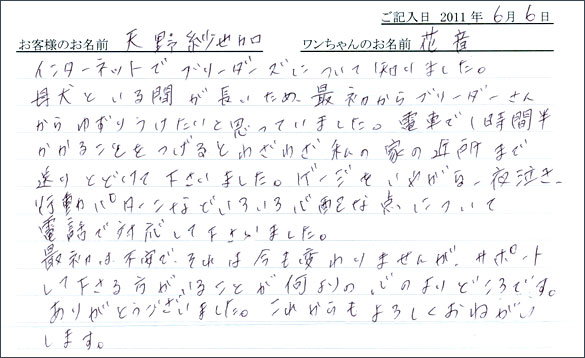 ご記入日 2011年 6月 6日
お客様のお名前 天野 ワンちゃんのお名前 花音
インターネットでブリーダーズについて知りました。
母犬といる間が長いため、最初からブリーダーさん
からゆずりうけたいと思っていました。電車で1時間半
かかることをつげるとわざわざ私の家の近所まで
送りとどけて下さいました。ゲージをいやがる、夜泣き、
行動パターンなどいろいろ心配な点について
電話で対応して下さいました。
最初は不安で、それは今も変わりませんが、サポート
して下さる方がいることが何よりの心のよりどころです。
ありがとうございました。これからもよろしくおねがい
します。